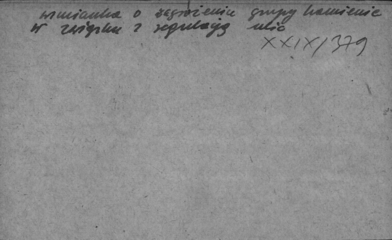 wzmianka o zagrożeniu grupy kamienic
w związku z regulacją ulic
XXIX/379